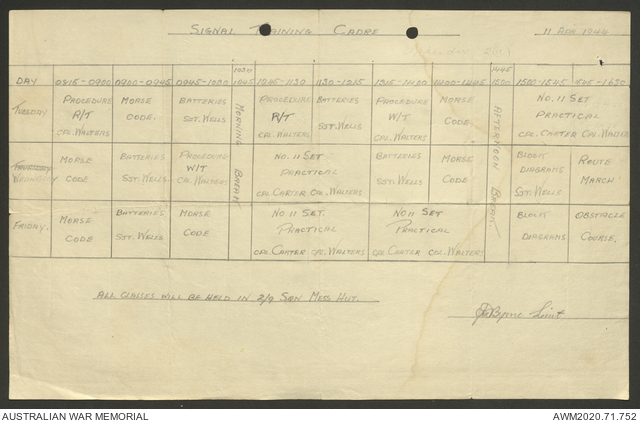 SIGNAL TRAINING CADRE 11 APR 194
DAY 0815-0900 0900-0945 0945-1030 1030 1045 1045-1130 1130-1215 1315-1400 1400-1445 1445 1500 1500-1545 1545-1630
TUESDAY PROCEDURE R/T CPL. WALTERS MORSE CODE. BATTERIES SGT. WELLS PROCEDURE R/T CPL WALTERS BATTERIES SGT. WELLS PROCEDURE W/T CPL WALTERS MORSE CODE. NO. 11 SET PRACTICAL CPL. CARTER CPL. WALTERS
MORNING BREAK
AFTERNOON BREAK.
WEDNESDAY MORSE CODE BATTERIES SGT. WELLS PROCEDURE W/T CPL. WALTERS NO. 11 SET PRACTICAL CPL CARTER CPL. WALTERS BATTERIES SGT. WELLS MORSE CODE BLOCK DIAGRAMS SGT. WELLS ROUTE MARCH.
FRIDAY. MORSE CODE BATTERIES SGT. WELLS MORSE CODE NO 11 SET. PRACTICAL CPL CARTER CPL. WALTERS NO 11 SET PRACTICAL CPL CARTER CPL. WALTERS BLOCK DIAGRAMS OBSTACLE COURSE.
ALL CLASSES WILL BE HELD IN 2/9 SQN MESS HUT.
Byrne Lieut
AUSTRALIAN WAR MEMORIAL AWM2020.71.752